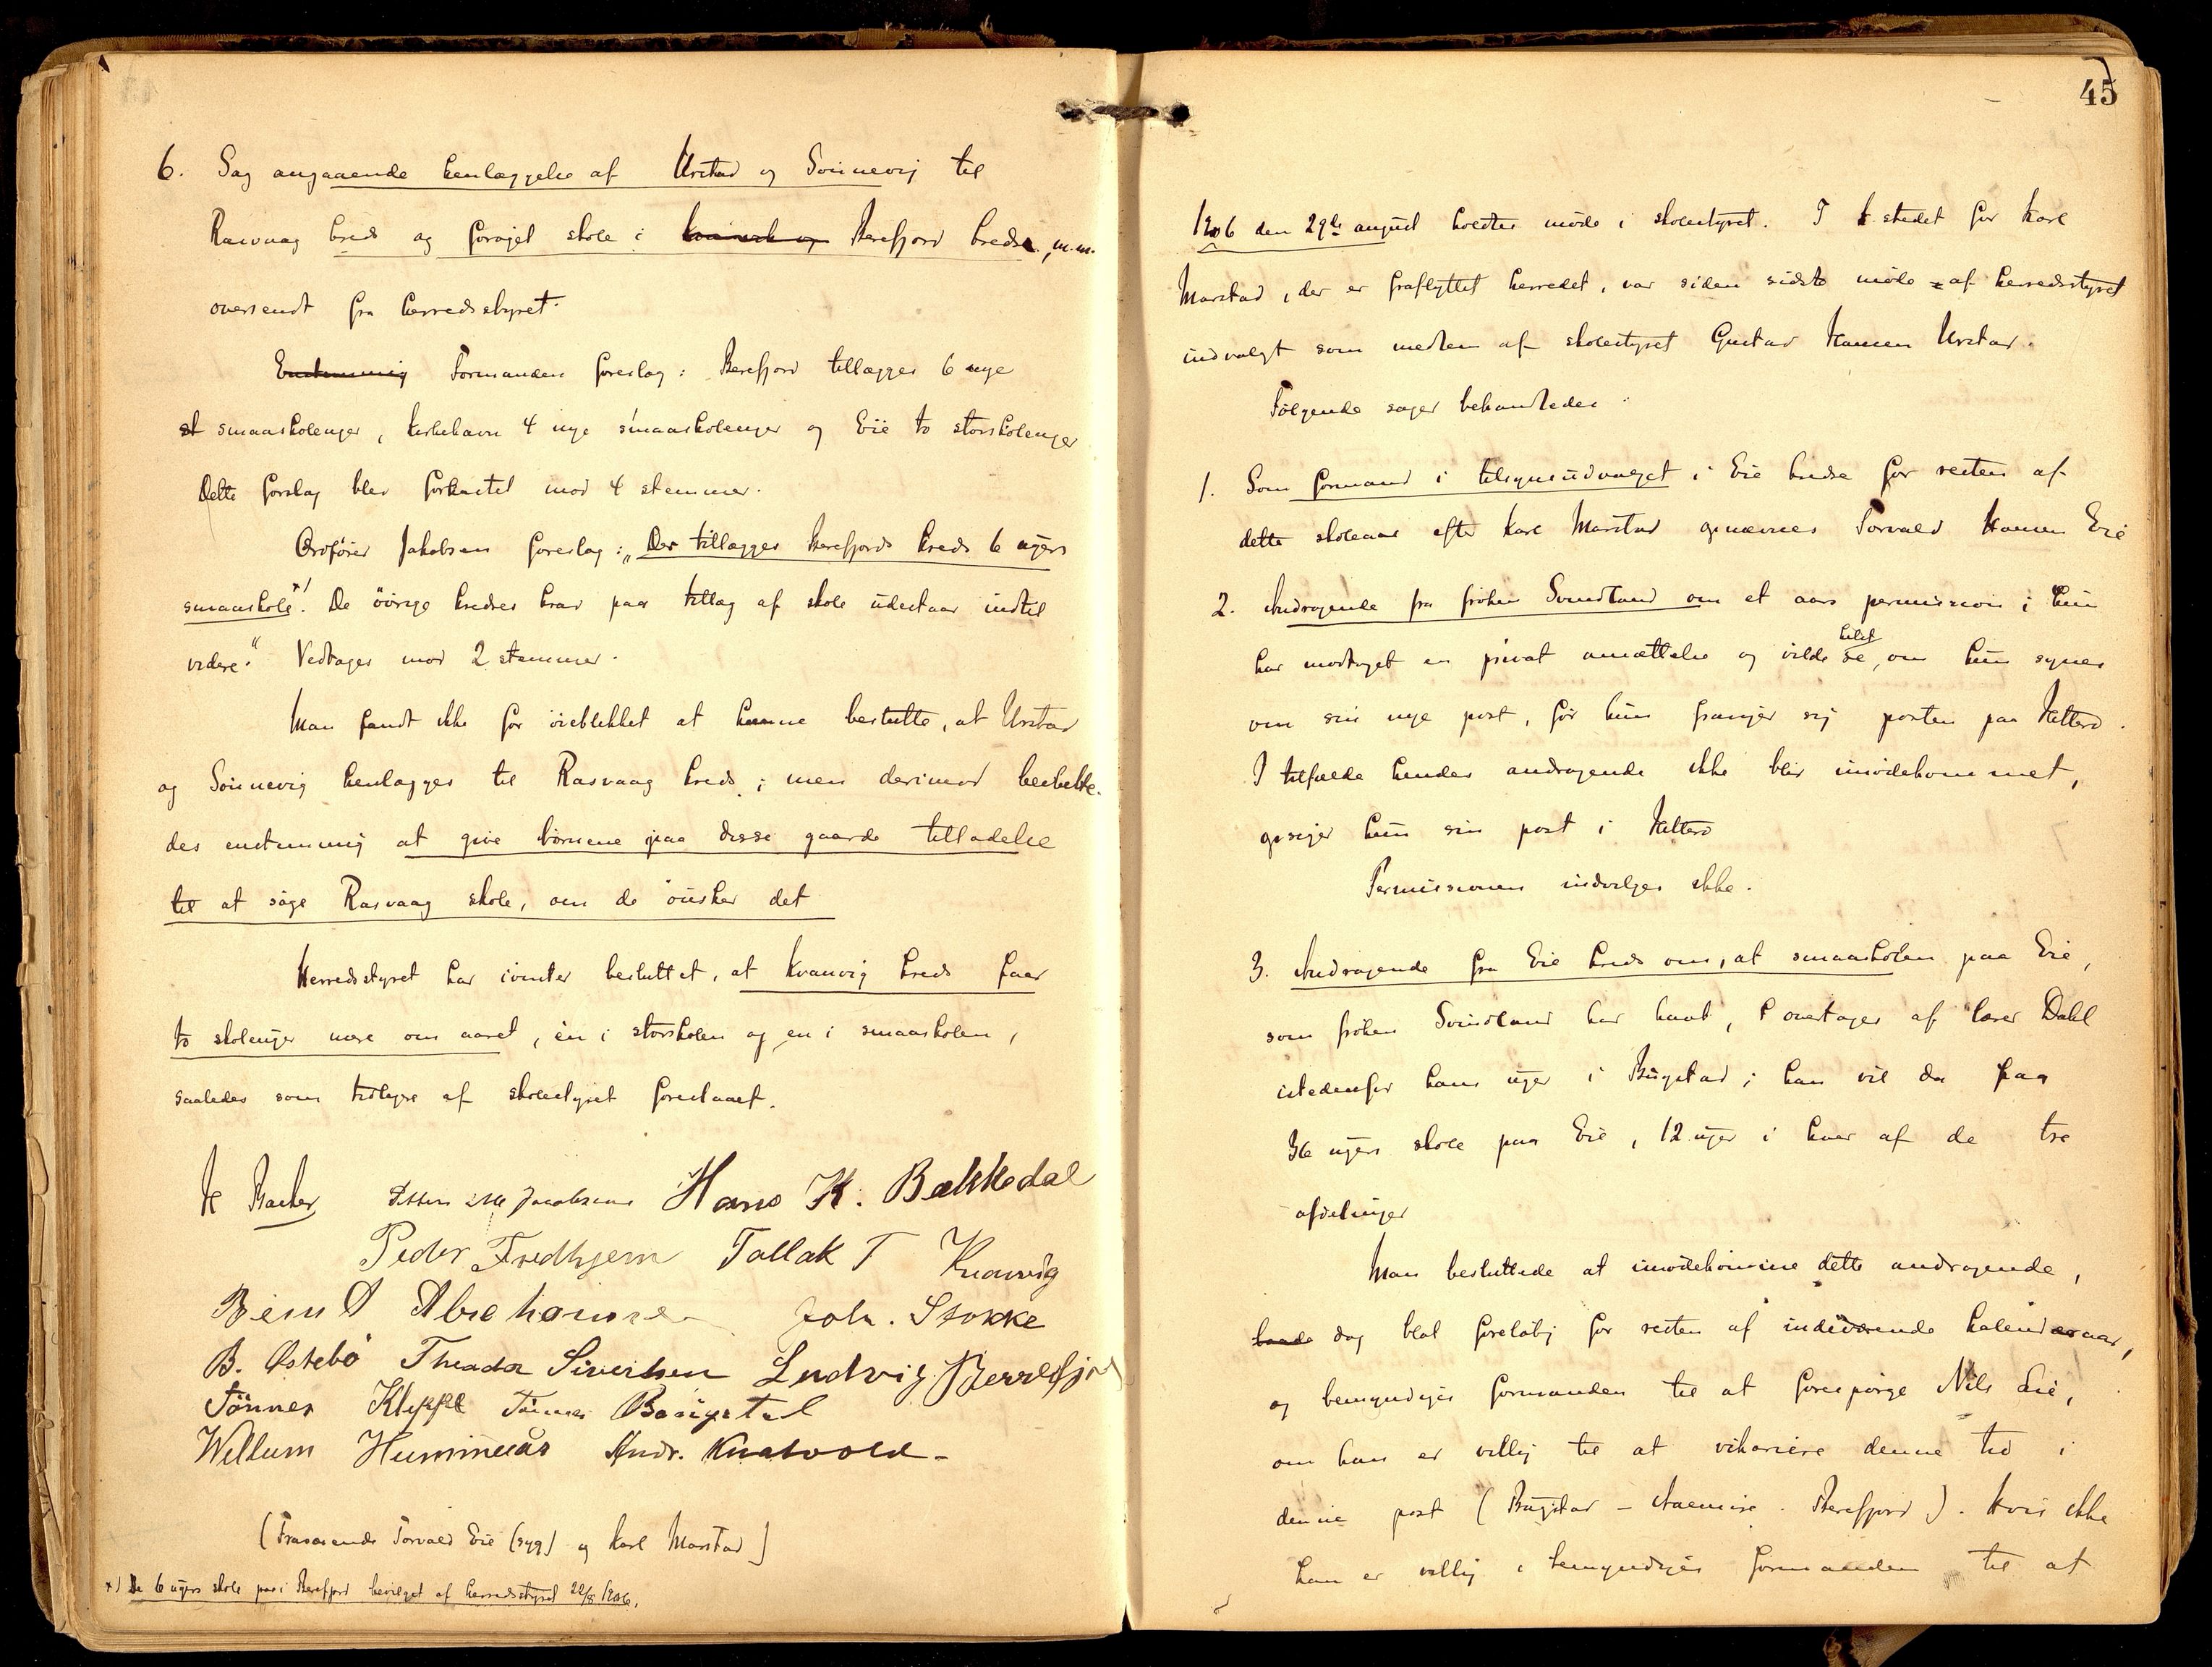 6. Sag angaaende henlæggelse af Urstad og Sönnevig til
Rasvaag kreds og forøjet skole i Berefjord kreds, m.m.
oversendt fra herredsstyret.
Enstemmig Formanden foreslog: Berefjord tillægges 6 nye
smaaskoleuger, Kirkehavn 4 nye smaaskoleuger og Eie to storskoleuger
Dette forslag blev forkastet mod 4 stemmer.
Ordfører Jakobsen foreslog: „Der tillægges Berefjords kreds 6 ugers
smaaskole x). De övrige kredses krav paa tillæg af skole udestaar indtil
videre." Vedtages mod 2 stemmer.
Man fandt ikke for öieblikket at kunne beslutte, at Urstad
og Sönnevig henlægges til Rasvaag kreds; men derimod beslutte-
des enstemmig at give börnene paa disse gaarde tilladelse
til at söge Rasvaag skole, om de önsker det
Herredsstyret har ivinter besluttet, at Kvanvig kreds faar
to skoleuger mere om aaret, én i storskolen og en i smaaskolen,
saaledes som tidligere af skolestyret foreslaaet.
Jacobsen Hans K. Bækkedal
Peder Fredhjem Tallak T Kvanvig
Bernt A Abrahamsen Joh. Stokke
B. Östebö Theodor Sivertsen Ludvig Berrefjord
Tönnes Kleppe Tönnes Bougstad
Willum Hummeraas Andr. Knatvold-
(Fraværende Torvald Eie (syg) og Karl Marstad)
x) De 6 ugers skole paa i Berefjord bevilget af herredsstyret 22/8 1906.
45
1906 den 29de august holdtes møde i skolestyret. I stedet for Karl
Marstad, der er fraflyttet herredet, var siden sidste møde af herredsstyret
indvalgt som medlem af skolestyret Gustav Hansen Urstad.
Følgende sager behandledes:
1. Som formand i tilsynsudvalget i Eie kreds for resten af
dette skoleaar efter Karl Marstad opnævnes Torvald Hansen Eie
2. Andragende fra frøken Svindland om et aars permission; hun
har modtaget en privat ansættelse og vilde helst se, om hun synes
om sin nye post, før hun frasiger sig posten paa Hitterø.
I tilfælde hendes andragende ikke blir imødekommet,
opsiger hun sin post i Hitterø
Permissionen indvilges ikke.
3. Andragende fra Eie kreds om, at smaaskolen paa Eie,
som frøken Svindland har havt, overtages af lærer Dahl
istedenfor hans uger i Bugstad; han vil da faa
36 ugers skole paa Eie, 12 uger i hver af de tre
afdelinger
Man besluttede at imødekomme dette andragende,
dog blot foreløbig for resten af indeværende kalenderaar,
og bemyndiges formanden til at forespørge Nils Lie,
om han er villig til at vikariere denne tid i
denne post (Bugstad – – Berefjord). Hvis ikke
han er villig, bemyndiges formanden til at